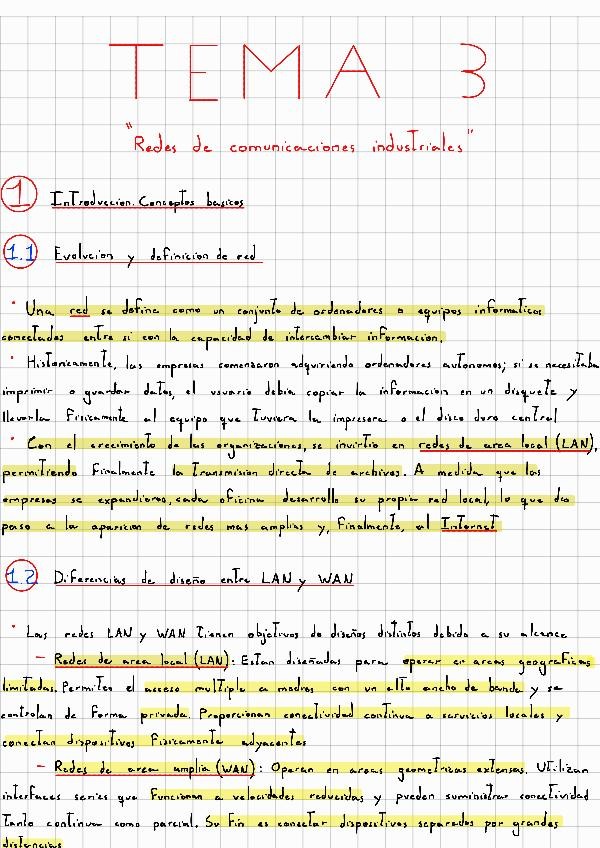 TEMA 3
"Redes de comunicaciones industriales"
1 Introduccion. Conceptos basicos
1.1 Evolucion y definicion de red
· Una red se define como un conjunto de ordenadores o equipos informaticos
conectados entre si con la capacidad de intercambiar informacion.
· Historicamente, las empresas comenzaron adquiriendo ordenadores autonomos; si se necesitaba
imprimir o guardar datos, el usuario debia copiar la informacion en un disquete y
llevarla fisicamente al equipo que tuviera la impresora o el disco duro central
· Con el crecimiento de las organizaciones, se invirtio en redes de area local (LAN),
permitiendo finalmente la transmision directa de archivos. A medida que las
empresas se expandieron, cada oficina desarrollo su propia red local, lo que dio
paso a la aparicion de redes mas amplias y, finalmente, al Internet
1.2 Diferencias de diseño entre LAN y WAN
· Las redes LAN y WAN tienen objetivos de diseños distintos debido a su alcance
- Redes de area local (LAN): Estan diseñadas para operar en areas geograficas
limitadas. Permiten el acceso multiple a medios con un alto ancho de banda y se
controlan de forma privada. Proporcionan conectividad continua a servicios locales y
conectan dispositivos fisicamente adyacentes
- Redes de area amplia (WAN): Operan en areas geometricas extensas. Utilizan
interfaces series que funcionan a velocidades reducidas y pueden suministrar conectividad
tanto continua como parcial. Su fin es conectar dispositivos separados por grandes
distancias